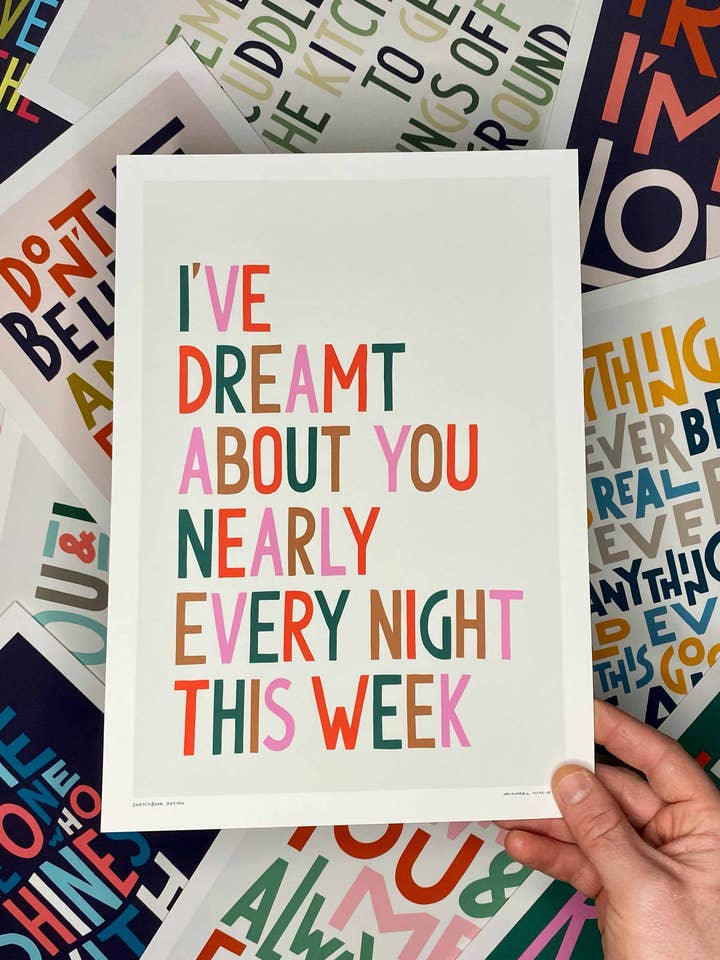 I'VE
DREAMT
ABOUT YOU
NEARLY
EVERY NIGHT
THIS WEEK
SKETCHBOOK DESIGN
MICHAEL WYLIE
CUDDLE
THE KITCH
TO GE
NGS OFF
ROUND
I'M
DON'T
BELI
AN
YTHING
EVER BE
REAL
EVE
ANYTHING
D EV
THIS GOO
&
OU
ONE
WHO
SHINES
WITH
YOU &
ALWA
ME